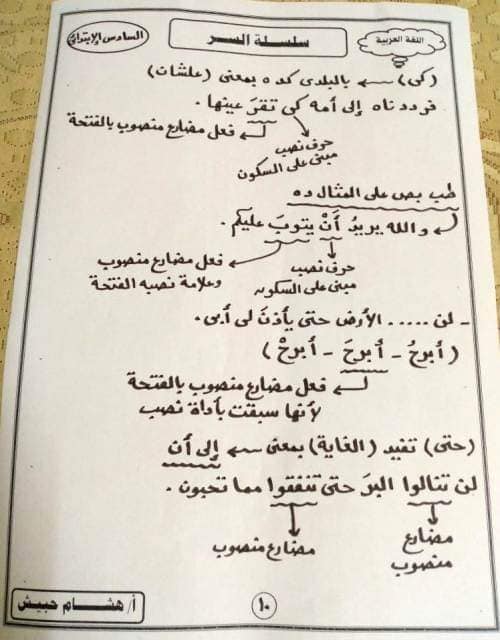 اللغة العربية
سلسلة السر
السادس الإبتدائي
(كى) ← بالبلدى كده بمعنى (علشان)
فرددناه إلى أمه كى تقرَ عينها .
فعل مضارع منصوب بالفتحة
حرف نصب
مبنى على السكون
طب بص على المثال ده
والله يريدُ أنْ يتوبَ عليكم .
فعل مضارع منصوب
وعلامة نصبه الفتحة
حرف نصب
مبنى على السكون
- لن ..... الأرض حتى يأذنَ لى أبى .
( أبرحُ - أبرحَ - أبرحْ )
فعل مضارع منصوب بالفتحة
لأنها سبقت بأداة نصب
(حتى) تفيد (الغاية) بمعنى ← إلى أن
لن تنالوا البرَ حتى تنفقوا مما تحبون .
مضارع
منصوب
مضارع منصوب
١٠
أ/ هشام حبيش